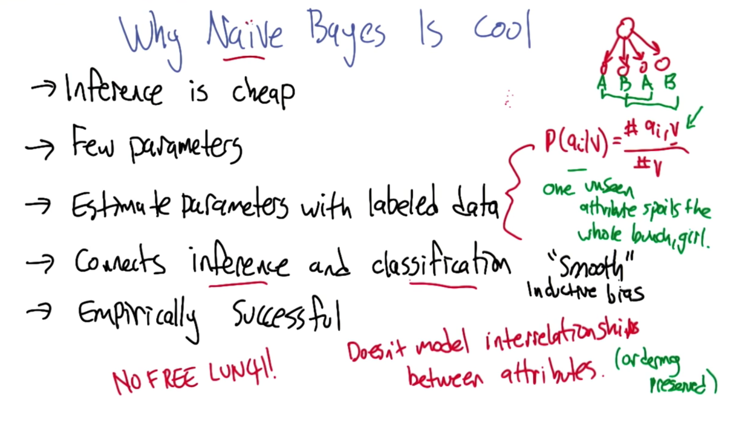 Why Naïve Bayes Is Cool
→ Inference is cheap
→ Few parameters
→ Estimate parameters with labeled data
→ Connects inference and classification
→ Empirically successful
NO FREE LUNCH!
Doesn't model interrelationships
between attributes.
(ordering
preserved)
A B A B
P(ai|V) = # ai, V
# V
one unseen
attribute spoils the
whole bunch, girl.
"Smooth"
Inductive bias